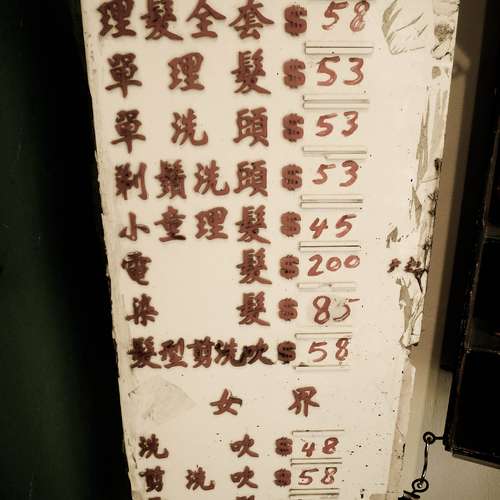 理髮全套 $ 58
單理髮 $ 53
單洗頭 $ 53
剃鬚洗頭 $ 53
小童理髮 $ 45
電髮 $ 200
染髮 $ 85
髮型剪洗吹 $ 58
女界
洗吹 $ 48
剪洗吹 $ 58